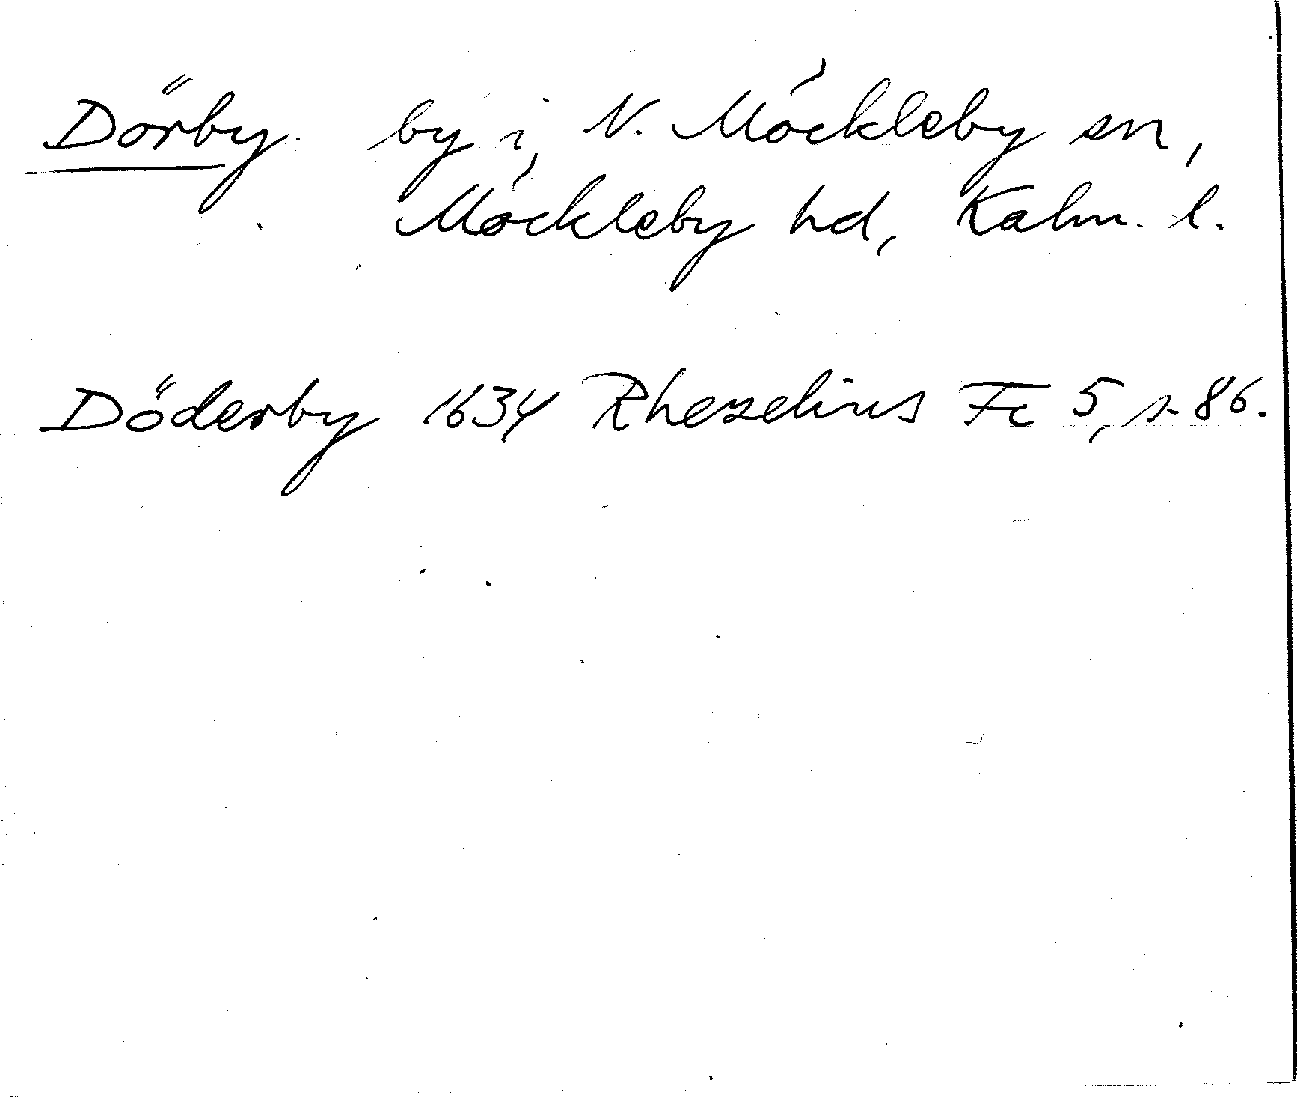 Dörby. by i N. Möckleby sn,
Möckleby hd, Kalm. l.
Döderby 1634 Rhezelius Fc 5, s. 86.